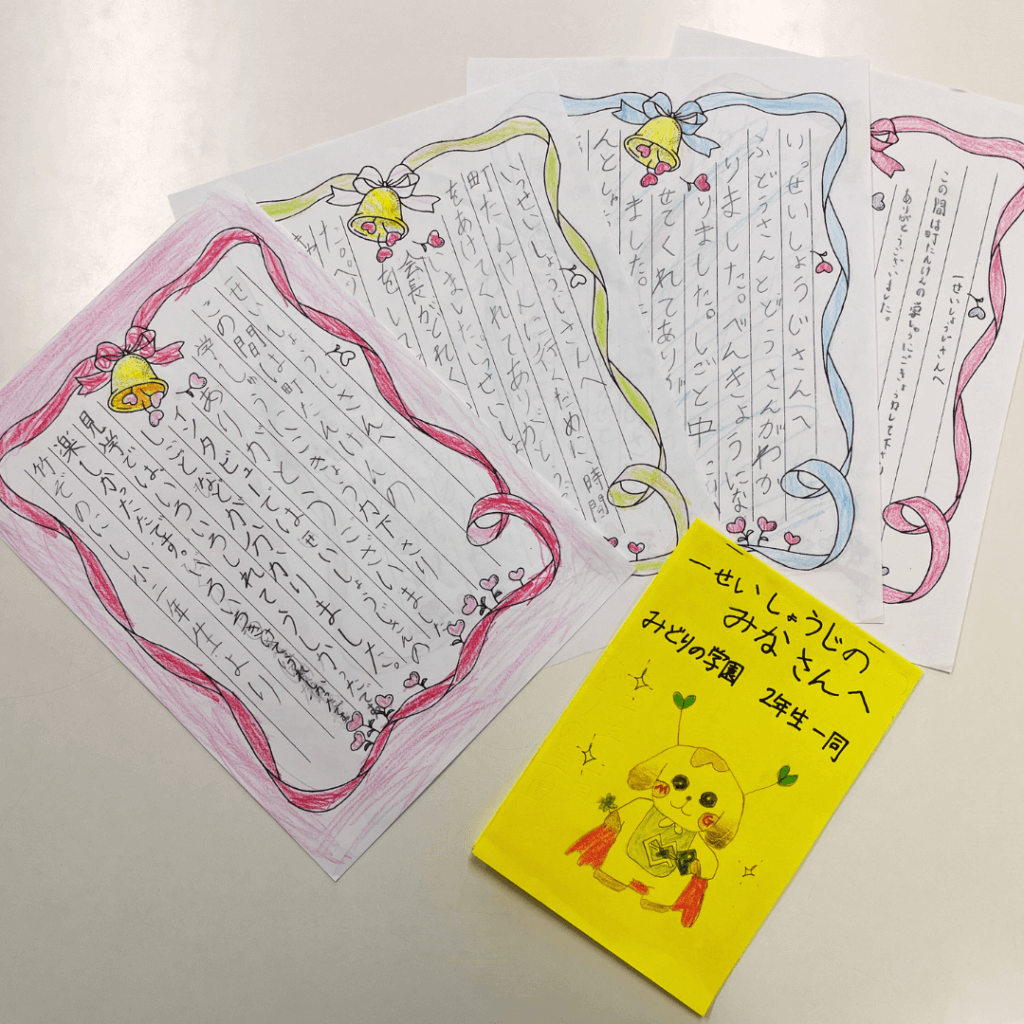 一せいしょうじの
みなさんへ
みどりの学園 2年生一同
せいしょうじさんへ
この間は町たんけんの
学しゅうにごきょう力下さり
ありがとうございました
インタビューではせいしょうじさんの
しごとがよく分かりました。
見学ではいろいろしれてうれしかったです
楽しかったです。
竹ぞのにし小二年生より
いっせいしょうじさんへ
町たんけんに行くために時間
をあけてくれてありがとう
いました。いっせいしょ
会長がとれ
を
して
た。
いっせいしょうじさんへ
ふどうさんとどうさんがわか
りました。べんきょうにな
りました。しごと中
せてくれてあり
ました。
んとし
一せいしょうじさんへ
この間は町たんけんの学しゅうにごきょう力して下さり
ありがとうございました。